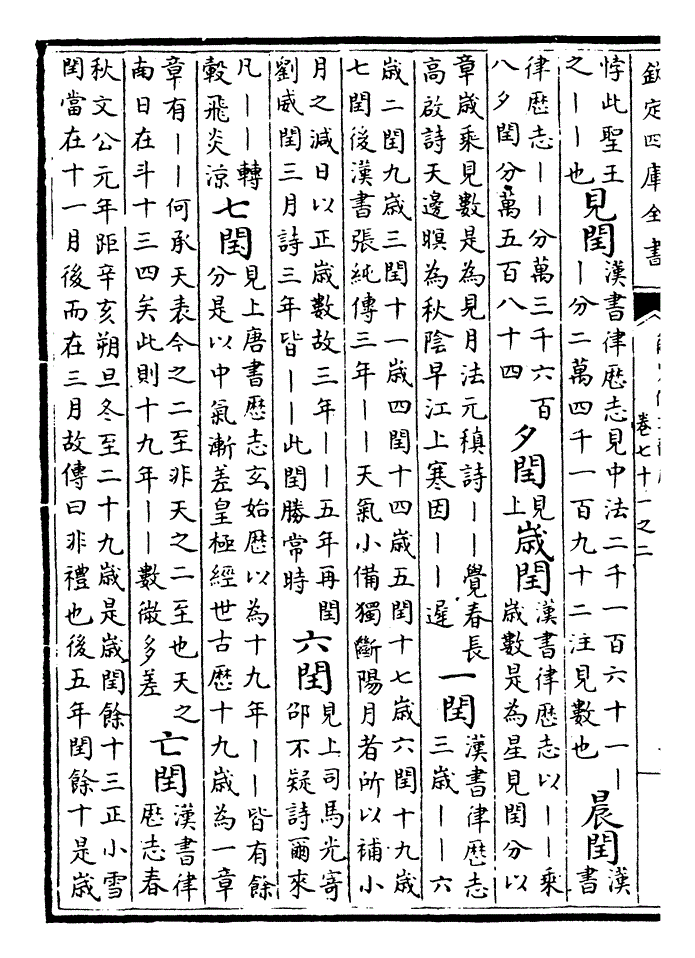 欽定四庫全書
卷七十一之二
悖此聖王
之——也
見閏
漢書律歴志見中法二千一百六十一—
—分二萬四千一百九十二注見數也
晨閏
漢
書
律歴志——分萬三千六百
八夕閏分萬五百八十四
夕閏
見
上
歳閏
漢書律歴志以——乘
歳數是為星見閏分以
章歳乘見數是為見月法元稹詩——覺春長
高啟詩天邊暝為秋陰早江上寒因——遲
一閏
漢書律歴志
三歳——六
歳二閏九歳三閏十一歳四閏十四歳五閏十七歳六閏十九歳
七閏後漢書張純傳三年——天氣小備獨斷陽月者所以補小
月之減日以正歳數故三年——五年再閏
劉威閏三月詩三年皆——此閏勝常時
六閏
見上司馬光寄
邵不疑詩爾來
凡——轉
轂飛炎涼
七閏
見上唐書歴志玄始歴以為十九年——皆有餘
分是以中氣漸差皇極經世古歴十九歳為一章
章有——何承天表今之二至非天之二至也天之
南日在斗十三四矣此則十九年——數微多差
亡閏
漢書律
歴志春
秋文公元年距辛亥朔旦冬至二十九歳是歳閏餘十三正小雪
閏當在十一月後而在三月故傳曰非禮也後五年閏餘十是歳